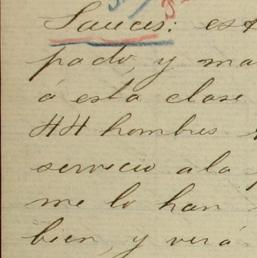 Sauces: est
pado, y ma
á esta clase
44 hombres
servicio a la
me lo han
bien, y verá